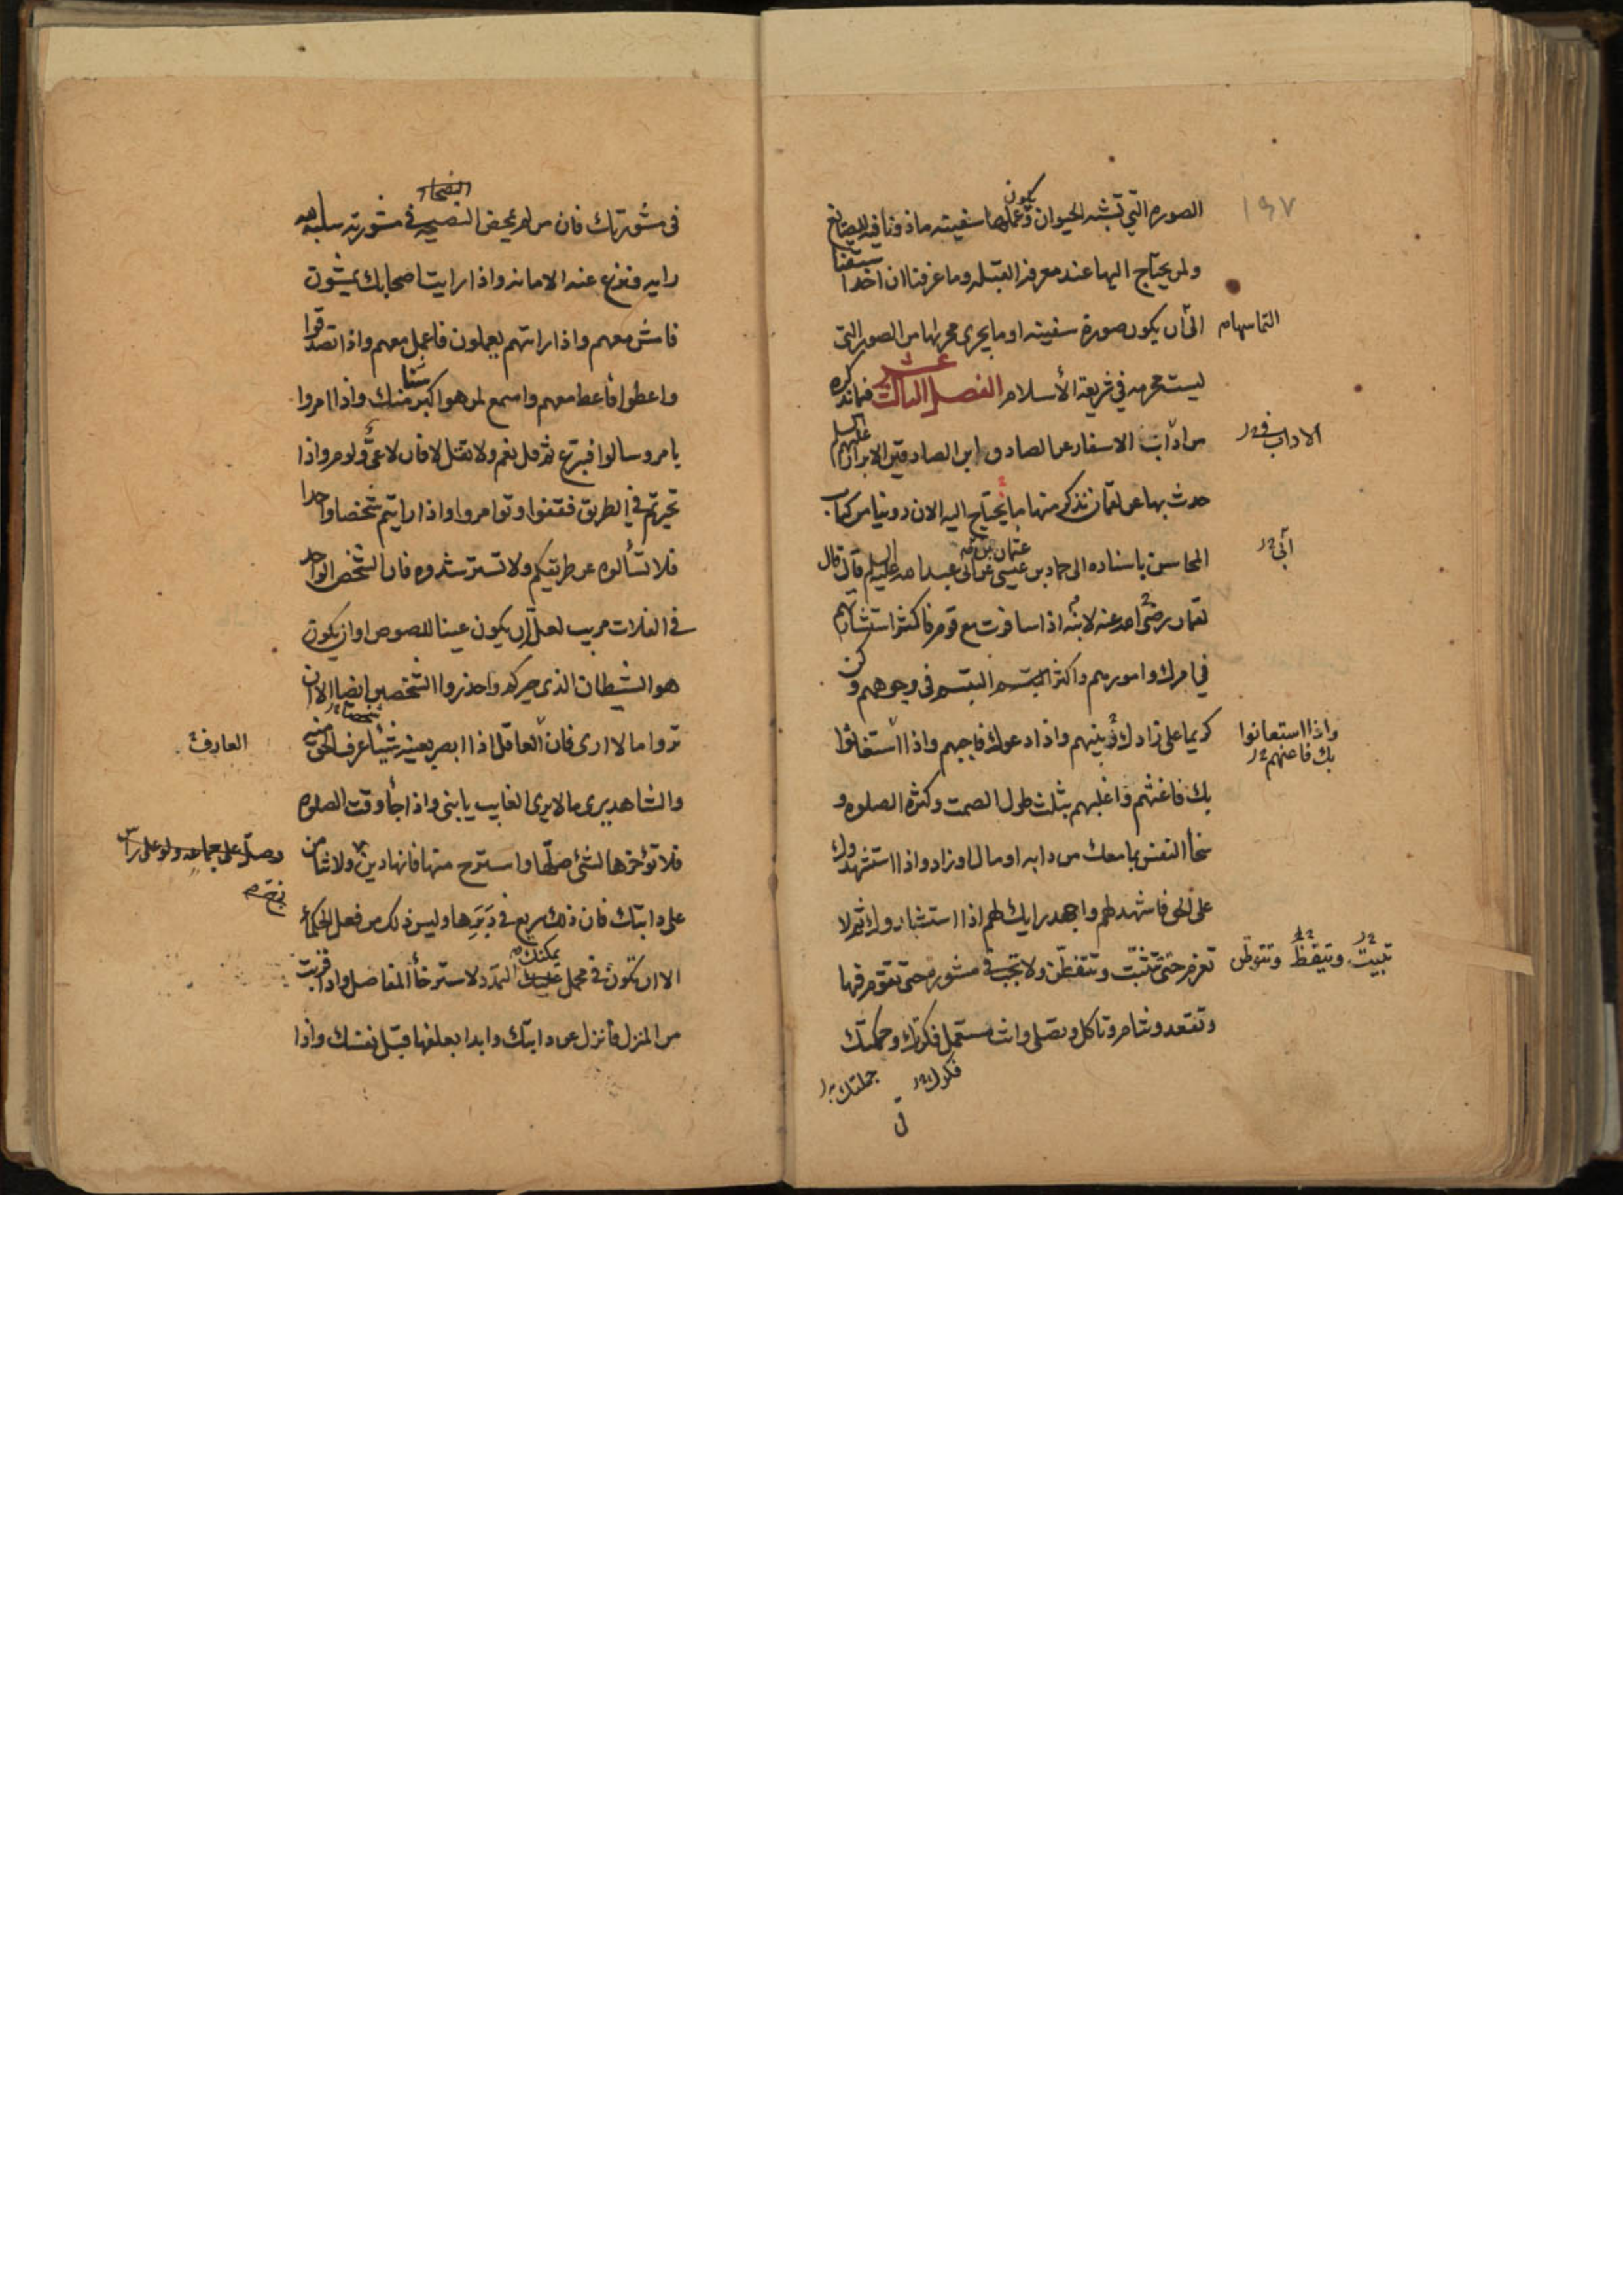 ١٩٧
الصوره التي تشبه الحيوان وعملها سفينه ماذونا فيه للصايغ
يكون
ولمن يحتاج اليها عند معرفة القبله وما عرفنا ان احدا
سبقنا
الى ان يكون صورة سفينه او ما يجرى مجراها من الصور التى
التماسهام
ليست محرمه في شريعة الأسلام الفصل الثالث عشر فيما نذكره
من اداب الاسفار عن الصادق ابن الصادقين الابرار عليهم السلم
الاداب في
حدث بها عن لقمان نذكر منها ما يحتاج اليه الان روينا من كتاب
المحاسن باسناده الى حماد بن عيسى عن ابى عبد الله عليه السلم قال قال
عثمان
ابى
لقمان رضى الله عنه لابنه اذا سافرت مع قوم فاكثر استشارتهم
في امرك وامورهم واكثر التبسم فى وجوههم وكن
كريما على زادك بينهم واذا دعوك فاجبهم واذا استغاثوا
واذا استعانوا
بك فاعنهم
بك فاغثهم واغلبهم بثلث طول الصمت وكثره الصلوه و
سخأ النفس بما معك من دابه او مال او زاد واذا استشهدوك
على الحق فاشهد لهم واجهد رايك لهم اذا استشاروك ثم لا
تعزم حتى تثبت وتتفطن ولا تجب فى مشوره حتى تقوم فيها
تبيت وتيقظ وتتوطن
وتقعد وتنام وتاكل وتصلى وانت مستعمل فكرتك وحكمتك
فكرك
جملتك
فى
فى مشورتك فان من لم يمحض النصيحه فى مشورته سلبه الله
رايه ونزع عنه الامانه واذا رايت اصحابك يمشون
فامش معهم واذا رايتهم يعملون فاعمل معهم واذا تصدقوا
واعطوا فاعط معهم واسمع لمن هو اكبر منك واذا امروا
سنا
يامر وسالوا فتبرع ثم قل نعم ولا تقل لا فان لا عى ولوم واذا
تحيرتم في الطريق فقفوا وتوامروا واذا رايتم شخصا واحدا
فلا تسألوه عن طريقكم ولا تسترشدوه فان الشخص الواحد
في الفلات مريب لعله ان يكون عينا للصوص او ان يكون
هو الشيطان الذى حيركم واحذروا الشخصين ايضا الا ان
تروا ما لا ارى فان العاقل اذا ابصر بعينه شيئا عرف الحق منه
العارف
والشاهد يرى ما لا يرى الغايب يا بنى واذا جأ وقت الصلوه
فلا تؤخرها لشئ صلها واسترح منها فانها دين ولا تنامن
وصل على جماعه ولو على راس
زج
على دابتك فان ذلك سريع في دبرها وليس ذلك من فعل الحكمأ
الا ان تكون فى محمل يمكنك التمدد لاسترخأ المفاصل واذا قربت
من المنزل فانزل عن دابتك وابدا بعلفها قبل نفسك واذا